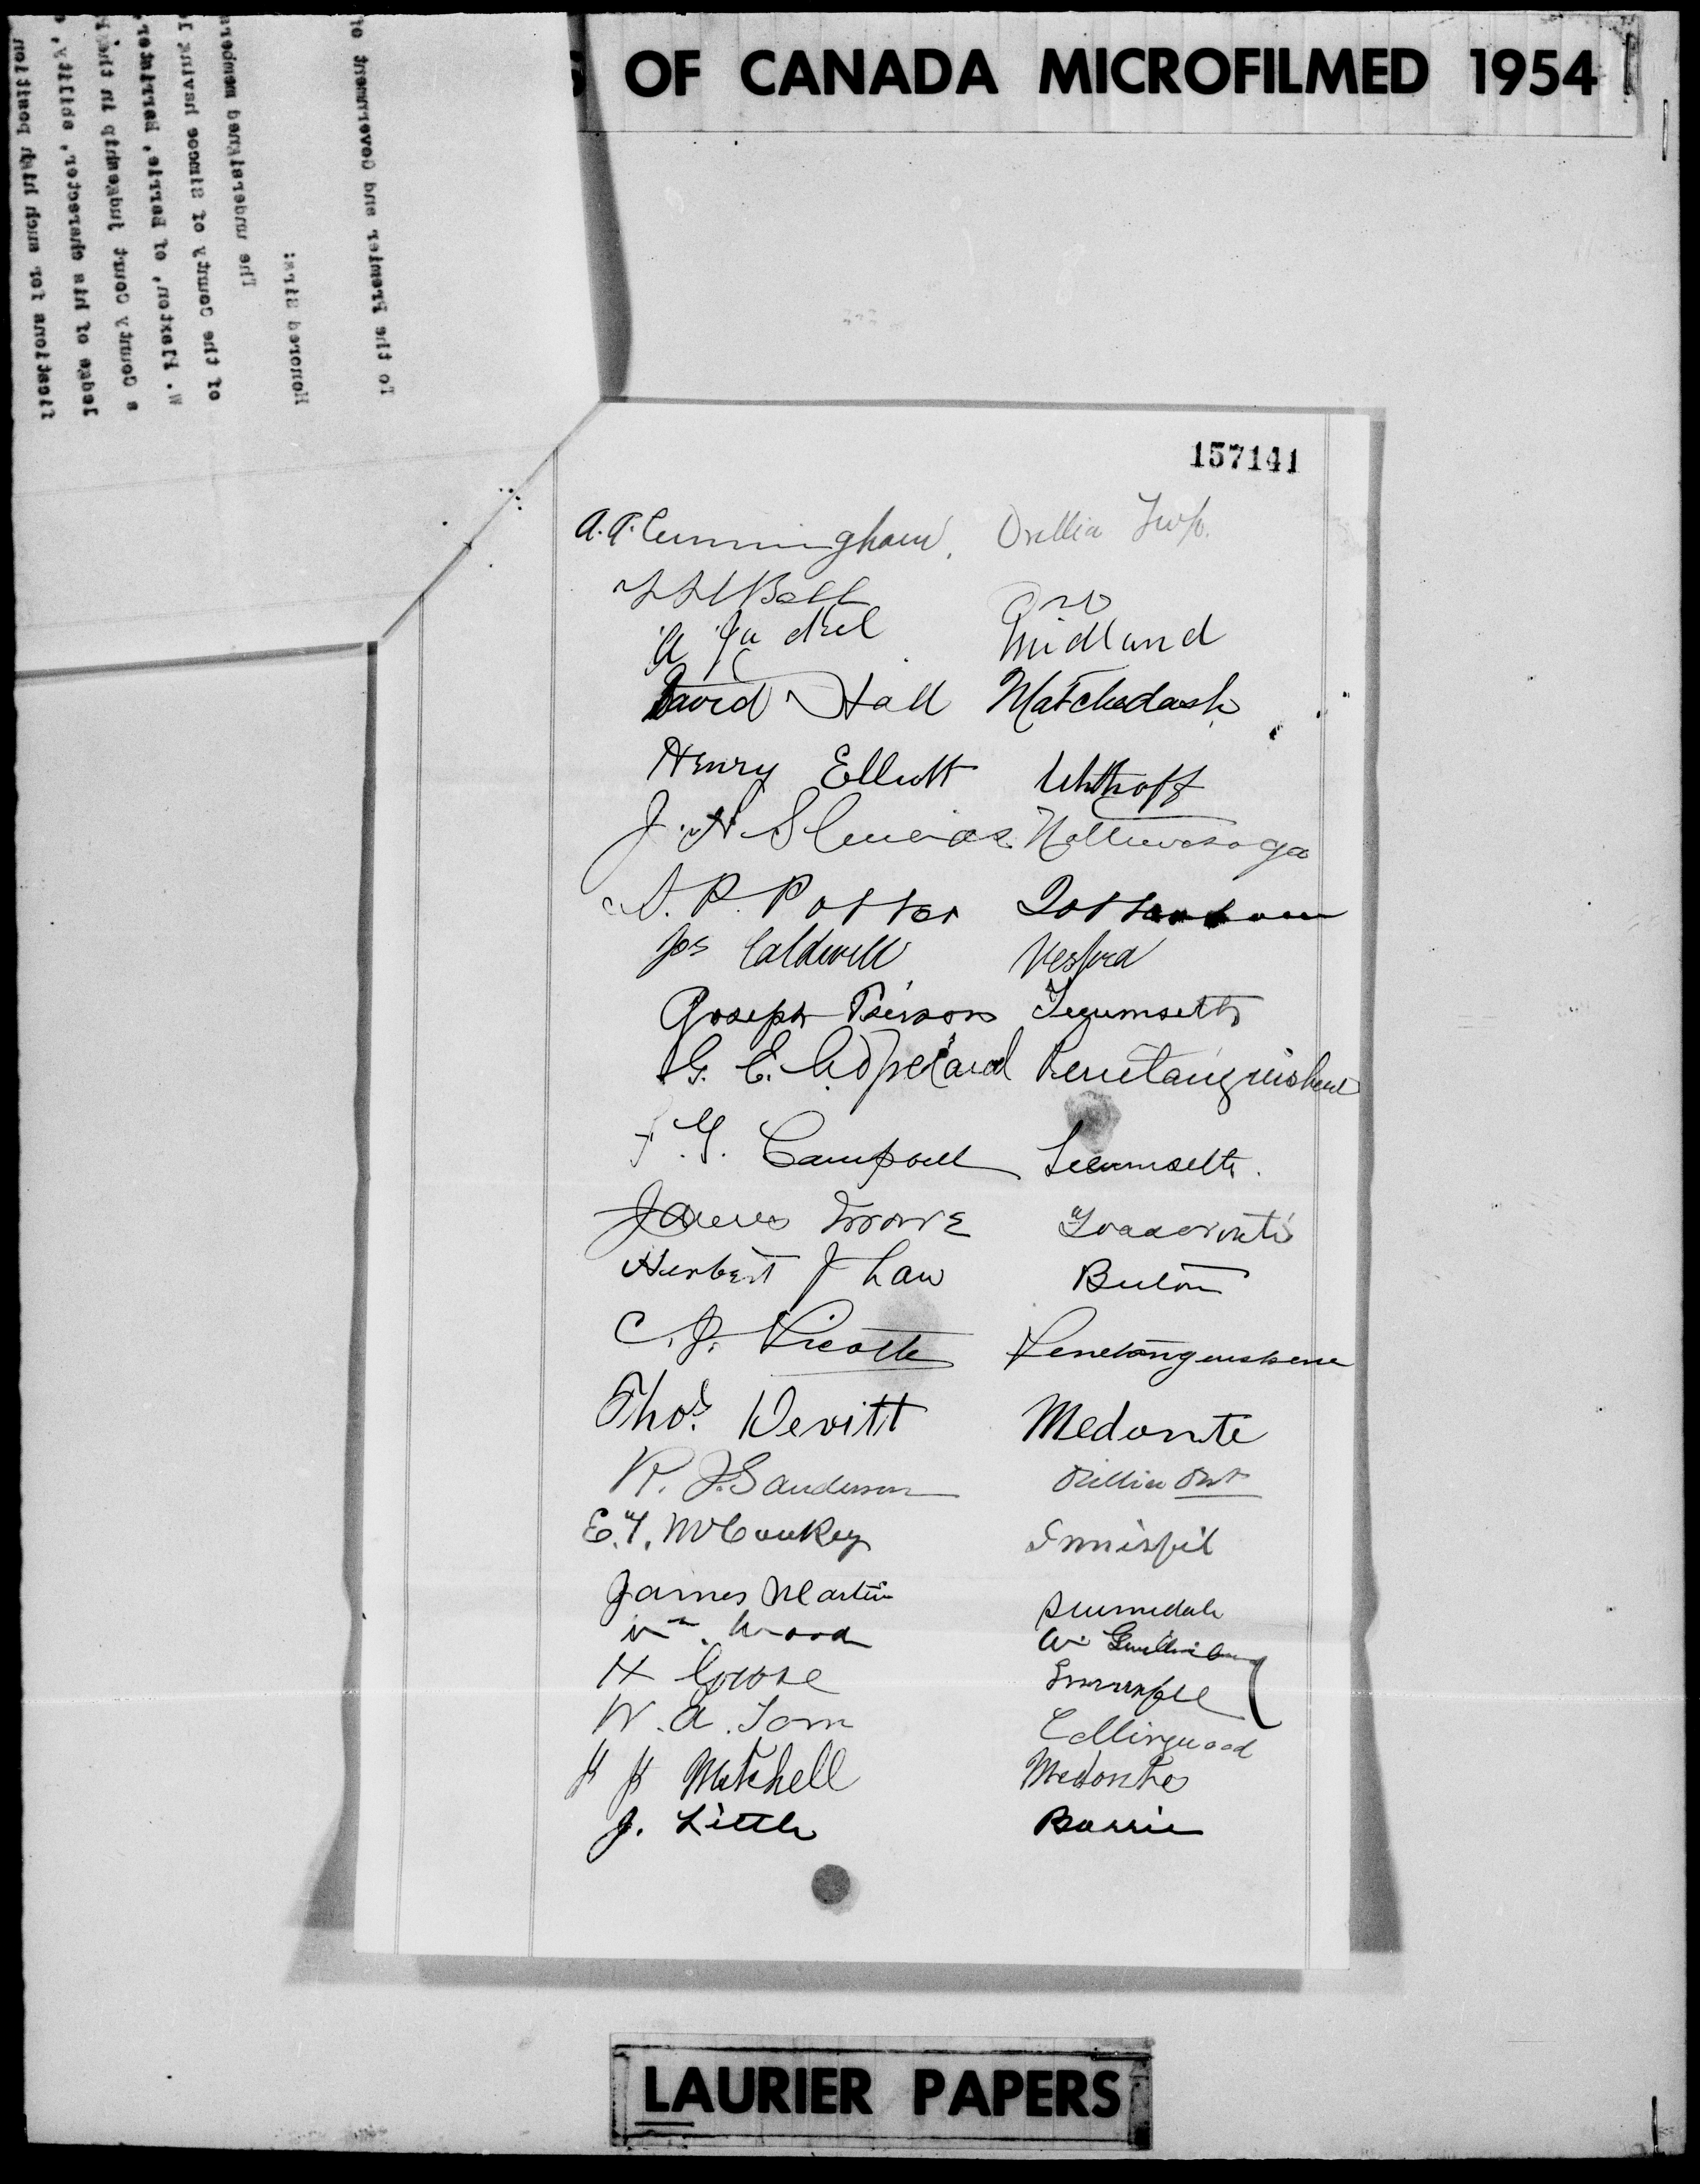 OF CANADA MICROFILMED 1954
To the Premier and Government of
Honored Sirs:
The undersigned members
of the County of Simcoe having
W. Plaxton, of Barrie, Barrister,
a County Court Judgeship in this
ledge of his character, ability,
fications for such high position
157141
A. A. Cunningham, Orillia Twp.
Bell Oro
A Midland
David Hall Matchedash
Henry Elliott Uhthoff
J. N. Nottawasaga
S. P. Potter Tottenham
Jos Caldwell Vespra
Joseph Peirson Tecumseth
G. E. Copeland Penetanguishene
F. G. Campbell Tecumseth.
James
Herbert J Law Beeton
C. J. Picotte Penetanguishene
Thos. Devitt Medonte
R. J. Sanderson Orillia Ont
E. Y. McConkey Innisfil
James Martin Sunnidale
Wm. Wood W. Gwillimbury
H Grose Innisfil
W. A. Tom Collingwood
Mitchell Medonte
J. Little Barrie
LAURIER PAPERS